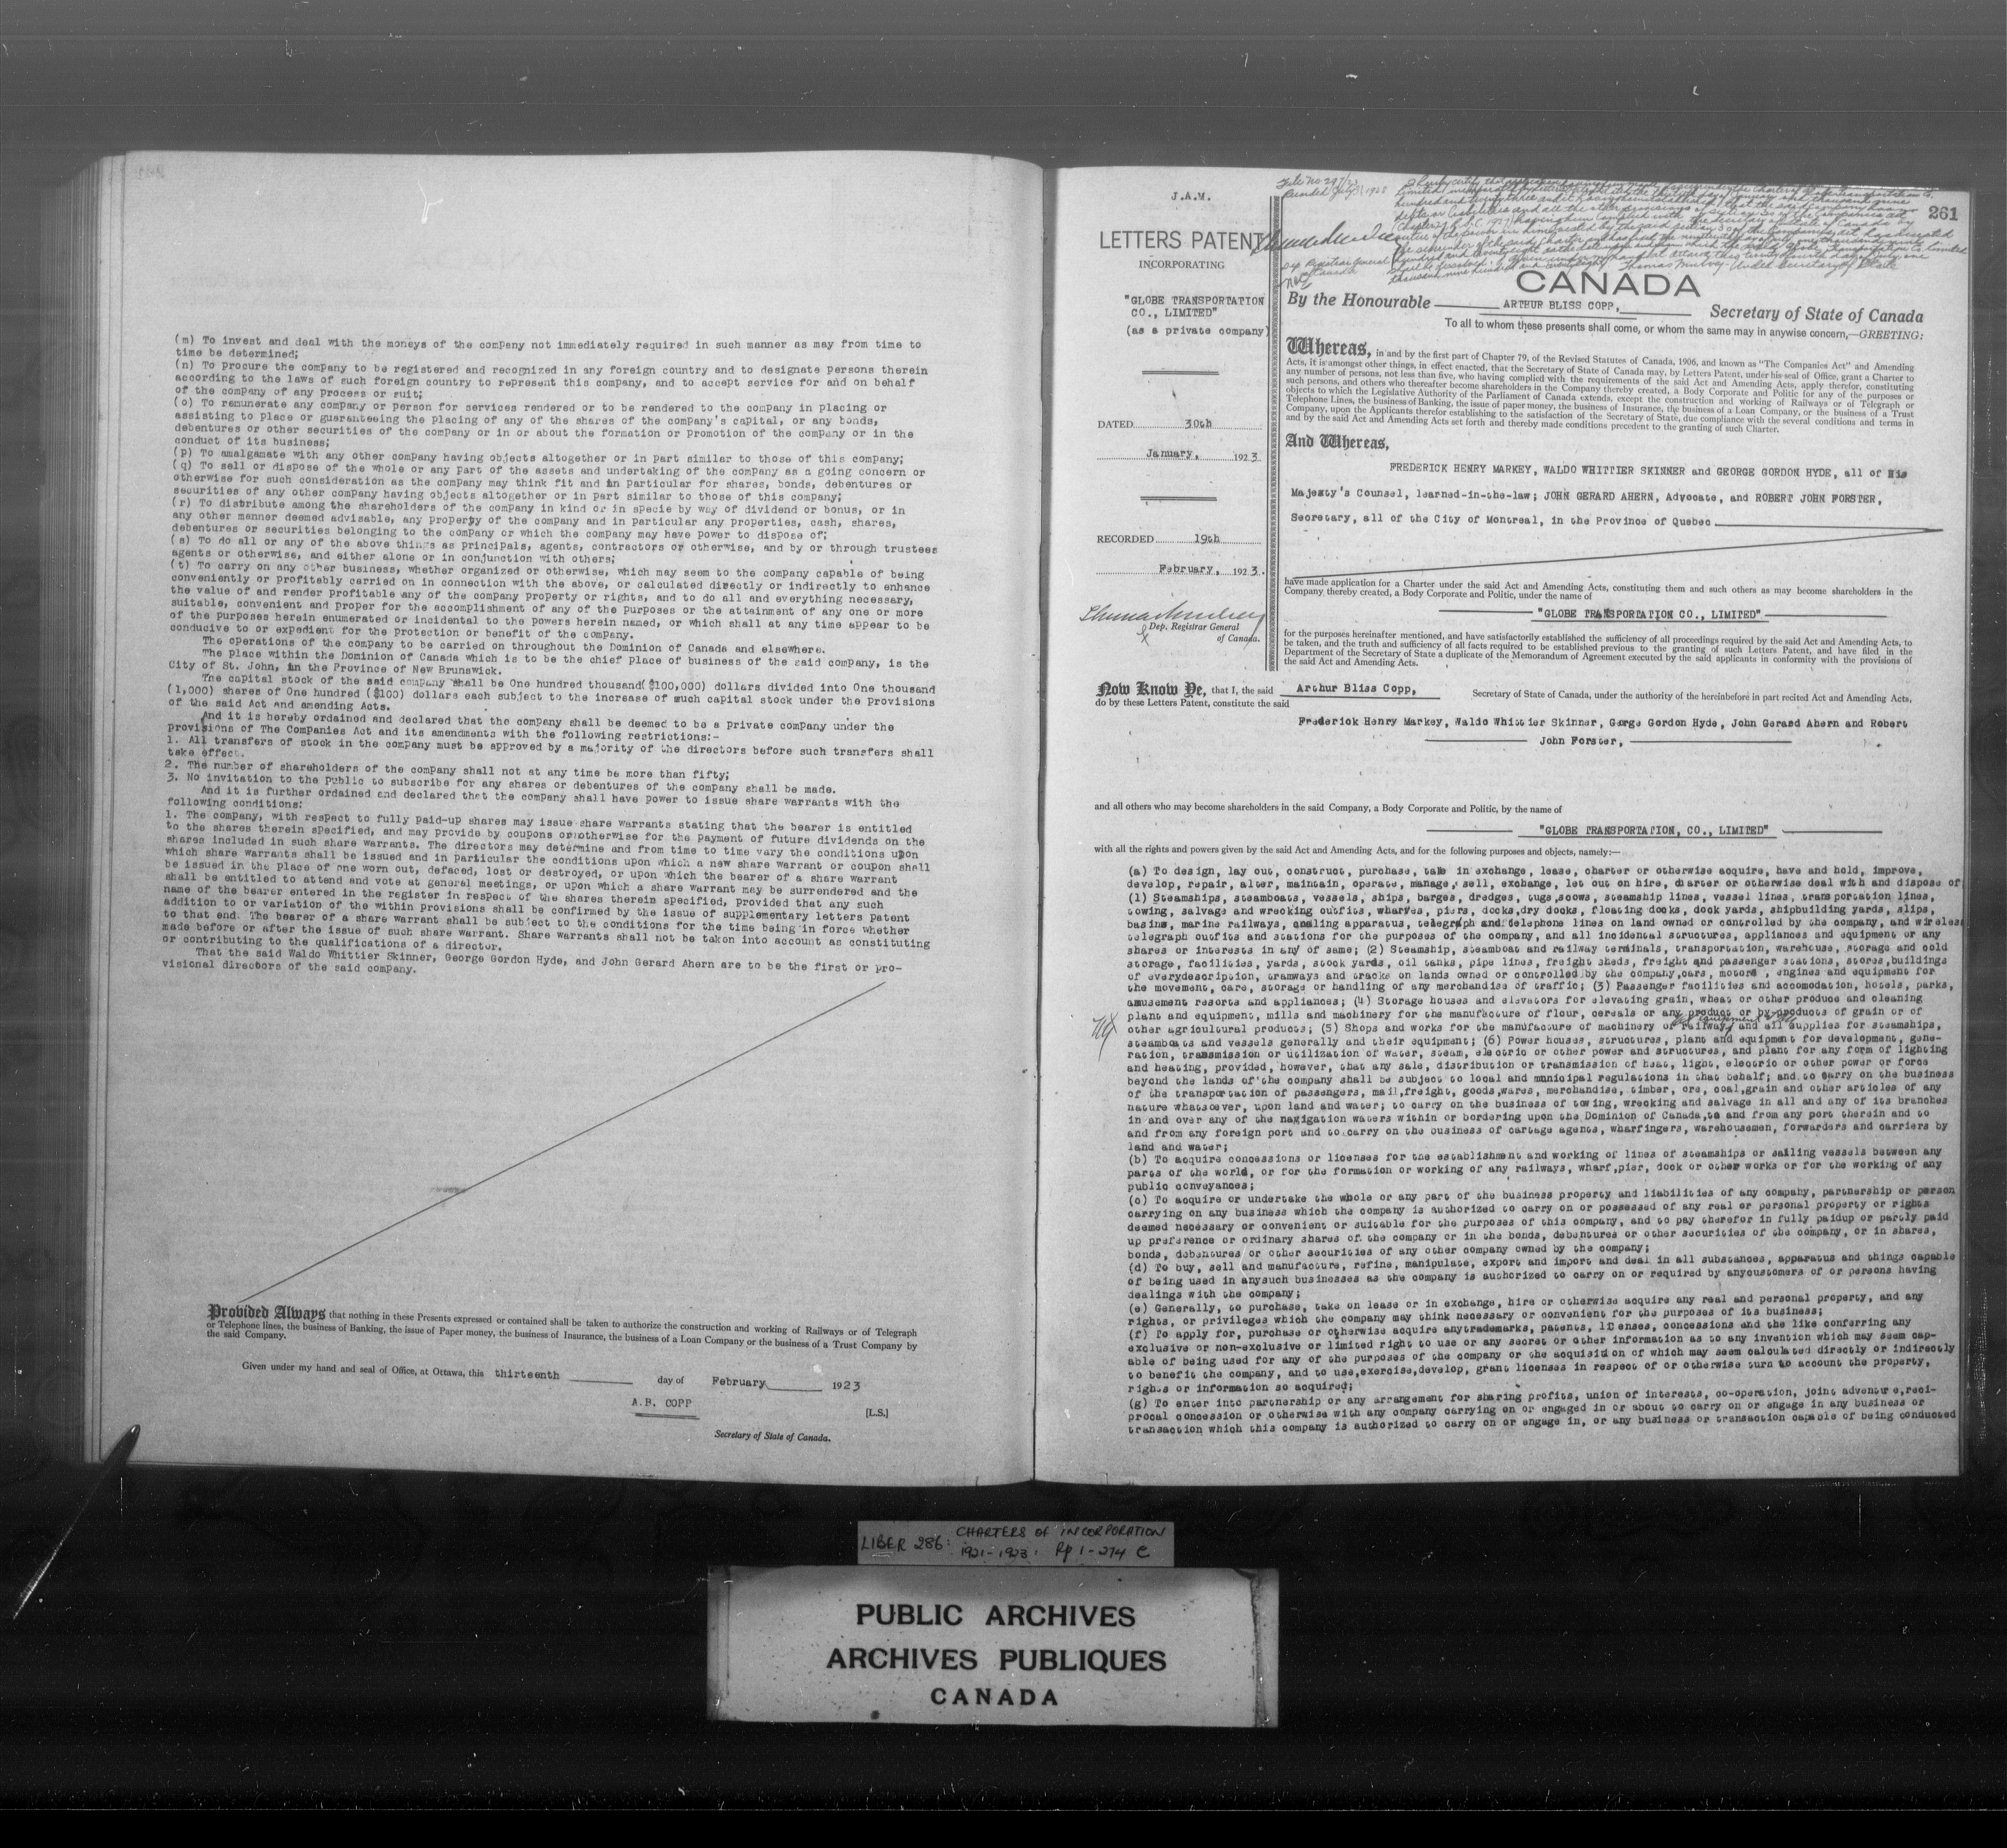 (m) To invest and deal with the moneys of the company not immediately required in such manner as may from time to
time be determined;
(n) To procure the company to be registered and recognized in any foreign country and to designate persons therein
according to the laws of such foreign country to represent this company, and to accept service for and on behalf
of the company of any process or suit;
(o) To remunerate any company or person for services rendered or to be rendered to the company in placing or
assisting to place or guaranteeing the placing of any of the shares of the company's capital, or any bonds,
debentures or other securities of the company or in or about the formation or promotion of the company or in the
conduct of its business;
(p) To amalgamate with any other company having objects altogether or in part similar to those of this company;
(q) To sell or dispose of the whole or any part of the assets and undertaking of the company as a going concern or
otherwise for such consideration as the company may think fit and in particular for shares, bonds, debentures or
securities of any other company having objects altogether or in part similar to those of this company;
(r) To distribute among the shareholders of the company in kind or in specie by way of dividend or bonus, or in
any other manner deemed advisable, any property of the company and in particular any properties, cash, shares,
debentures or securities belonging to the company or which the company may have power to dispose of;
(s) To do all or any of the above things as principals, agents, contractors or otherwise, and by or through trustees
agents or otherwise, and either alone or in conjunction with others;
(t) To carry on any other business, whether organized or otherwise, which may seem to the company capable of being
conveniently or profitably carried on in connection with the above, or calculated directly or indirectly to enhance
the value of and render profitable any of the company property or rights, and to do all and everything necessary,
suitable, convenient and proper for the accomplishment of any of the purposes or the attainment of any one or more
of the purposes herein enumerated or incidental to the powers herein named, or which shall at any time appear to be
conducive to or expedient for the protection or benefit of the company.
The operations of the company to be carried on throughout the Dominion of Canada and elsewhere.
The place within the Dominion of Canada which is to be the chief place of business of the said company, is the
City of St. John, in the Province of New Brunswick.
The capital stock of the said company shall be One hundred thousand($100,000) dollars divided into One thousand
(1,000) shares of One hundred ($100) dollars each subject to the increase of such capital stock under the provisions
of the said Act and amending Acts.
And it is hereby ordained and declared that the company shall be deemed to be a private company under the
provisions of The Companies Act and its amendments with the following restrictions:-
1. All transfers of stock in the company must be approved by a majority of the directors before such transfers shall
take effect.
2. The number of shareholders of the company shall not at any time be more than fifty;
3. No invitation to the public to subscribe for any shares or debentures of the company shall be made.
And it is further ordained and declared that the company shall have power to issue share warrants with the
following conditions:
1. The company, with respect to fully paid-up shares may issue share warrants stating that the bearer is entitled
to the shares therein specified, and may provide by coupons or otherwise for the payment of future dividends on the
shares included in such share warrants. The directors may determine and from time to time vary the conditions upon
which share warrants shall be issued and in particular the conditions upon which a new share warrant or coupon shall
be issued in the place of one worn out, defaced, lost or destroyed, or upon which the bearer of a share warrant
shall be entitled to attend and vote at general meetings, or upon which a share warrant may be surrendered and the
name of the bearer entered in the register in respect of the shares therein specified, provided that any such
addition to or variation of the within provisions shall be confirmed by the issue of supplementary letters patent
to that end. The bearer of a share warrant shall be subject to the conditions for the time being in force whether
made before or after the issue of such share warrant. Share warrants shall not be taken into account as constituting
or contributing to the qualifications of a director.
That the said Waldo Whittier Skinner, George Gordon Hyde, and John Gerard Ahern are to be the first or pro-
visional directors of the said company.
Provided Always that nothing in these Presents expressed or contained shall be taken to authorize the construction and working of Railways or of Telegraph
or Telephone lines, the business of Banking, the issue of Paper money, the business of Insurance, the business of a Loan Company or the business of a Trust Company by
the said Company.
Given under my hand and seal of Office, at Ottawa, this thirteenth day of February 1923
A.B. COPP
[L.S.]
Secretary of State of Canada.
J.A.M.
LETTERS PATENT
INCORPORATING
"GLOBE TRANSPORTATION
CO., LIMITED"
(as a private company)
DATED 30th
January, 1923
RECORDED 19th
February, 1923.
Thomas Mulvey
Dep. Registrar General
of Canada.
261
CANADA
By the Honourable ARTHUR BLISS COPP, Secretary of State of Canada
To all to whom these presents shall come, or whom the same may in anywise concern,—GREETING:
Whereas, in and by the first part of Chapter 79, of the Revised Statutes of Canada, 1906, and known as "The Companies Act" and Amending
Acts, it is amongst other things, in effect enacted, that the Secretary of State of Canada may, by Letters Patent, under his seal of Office, grant a Charter to
any number of persons, not less than five, who having complied with the requirements of the said Act and Amending Acts, apply therefor, constituting
such persons, and others who thereafter become shareholders in the Company thereby created, a Body Corporate and Politic for any of the purposes or
objects to which the Legislative Authority of the Parliament of Canada extends, except the construction and working of Railways or of Telegraph or
Telephone Lines, the business of Banking, the issue of paper money, the business of Insurance, the business of a Loan Company, or the business of a Trust
Company, upon the Applicants therefor establishing to the satisfaction of the Secretary of State, due compliance with the several conditions and terms in
and by the said Act and Amending Acts set forth and thereby made conditions precedent to the granting of such Charter.
And Whereas,
FREDERICK HENRY MARKEY, WALDO WHITTIER SKINNER and GEORGE GORDON HYDE, all of His
Majesty's Counsel, learned-in-the-law; JOHN GERARD AHERN, Advocate, and ROBERT JOHN FORSTER,
Secretary, all of the City of Montreal, in the Province of Quebec
have made application for a Charter under the said Act and Amending Acts, constituting them and such others as may become shareholders in the
Company thereby created, a Body Corporate and Politic, under the name of
"GLOBE TRANSPORTATION CO., LIMITED"
for the purposes hereinafter mentioned, and have satisfactorily established the sufficiency of all proceedings required by the said Act and Amending Acts, to
be taken, and the truth and sufficiency of all facts required to be established previous to the granting of such Letters Patent, and have filed in the
Department of the Secretary of State a duplicate of the Memorandum of Agreement executed by the said applicants in conformity with the provisions of
the said Act and Amending Acts.
Now Know Ye, that I, the said Arthur Bliss Copp, Secretary of State of Canada, under the authority of the hereinbefore in part recited Act and Amending Acts,
do by these Letters Patent, constitute the said
Frederick Henry Markey, Waldo Whittier Skinner, George Gordon Hyde, John Gerard Ahern and Robert
John Forster,
and all others who may become shareholders in the said Company, a Body Corporate and Politic, by the name of
"GLOBE TRANSPORTATION, CO., LIMITED"
with all the rights and powers given by the said Act and Amending Acts, and for the following purposes and objects, namely:—
(a) To design, lay out, construct, purchase, take in exchange, lease, charter or otherwise acquire, have and hold, improve,
develop, repair, alter, maintain, operate, manage, sell, exchange, let out on hire, charter or otherwise deal with and dispose of
(1) Steamships, steamboats, vessels, ships, barges, dredges, tugs,scows, steamship lines, vessel lines, transportation lines,
towing, salvage and wrecking outfits, wharves, piers, docks,dry docks, floating docks, dock yards, shipbuilding yards, slips,
basins, marine railways, coaling apparatus, telegraph and telephone lines on land owned or controlled by the company, and wireless
telegraph outfits and stations for the purposes of the company, and all incidental structures, appliances and equipment or any
shares or interests in any of same; (2) Steamship, steamboat and railway terminals, transportation, warehouse, storage and cold
storage, facilities, yards, stock yards, oil tanks, pipe lines, freight sheds, freight and passenger stations, stores,buildings
of everydescription, tramways and tracks on lands owned or controlled by the company,cars, motors , engines and equipment for
the movement, care, storage or handling of any merchandise of traffic; (3) Passenger facilities and accomodation, hotels, parks,
amusement resorts and appliances; (4) Storage houses and elevators for elevating grain, wheat or other produce and cleaning
plant and equipment, mills and machinery for the manufacture of flour, cereals or any product or by-products of grain or of
other agricultural products; (5) Shops and works for the manufacture of machinery of railways and all supplies for steamships,
steamboats and vessels generally and their equipment; (6) Power houses, structures, plant and equipment for development, gene-
ration, transmission or utilization of water, steam, electric or other power and structures, and plant for any form of lighting
and heating, provided, however, that any sale, distribution or transmission of heat, light, electric or other power or force
beyond the lands of the company shall be subject to local and municipal regulations in that behalf; and to carry on the business
of the transportation of passengers, mail,freight, goods,wares, merchandise, timber, ore, coal,grain and other articles of any
nature whatsoever, upon land and water; to carry on the business of towing, wrecking and salvage in all and any of its branches
in and over any of the navigation waters within or bordering upon the Dominion of Canada,to and from any port therein and to
and from any foreign port and to carry on the business of cartage agents, wharfingers, warehousemen, forwarders and carriers by
land and water;
(b) To acquire concessions or licenses for the establishment and working of lines of steamships or sailing vessels between any
parts of the world, or for the formation or working of any railways, wharf,pier, dock or other works or for the working of any
public conveyances;
(c) To acquire or undertake the whole or any part of the business property and liabilities of any company, partnership or person
carrying on any business which the company is authorized to carry on or possessed of any real or personal property or rights
deemed necessary or convenient or suitable for the purposes of this company, and to pay therefor in fully paidup or partly paid
up preference or ordinary shares of the company or in the bonds, debentures or other securities of the company, or in shares,
bonds, debentures or other securities of any other company owned by the company;
(d) To buy, sell and manufacture, refine, manipulate, export and import and deal in all substances, apparatus and things capable
of being used in anysuch businesses as the company is authorized to carry on or required by anycustomers of or persons having
dealings with the company;
(e) Generally, to purchase, take on lease or in exchange, hire or otherwise acquire any real and personal property, and any
rights, or privileges which the company may think necessary or convenient for the purposes of its business;
(f) To apply for, purchase or otherwise acquire anytrademarks, patents, licenses, concessions and the like conferring any
exclusive or non-exclusive or limited right to use or any secret or other information as to any invention which may seem cap-
able of being used for any of the purposes of the company or the acquisition of which may seem calculated directly or indirectly
to benefit the company, and to use,exercise,develop, grant licenses in respect of or otherwise turn to account the property,
rights or information so acquired;
(g) To enter into partnership or any arrangement for sharing profits, union of interests, co-operation, joint adventure,reci-
procal concession or otherwise with any company carrying on or engaged in or about to carry on or engage in any business or
transaction which this company is authorized to carry on or engage in, or any business or transaction capable of being conducted
LIBER 286: CHARTERS OF INCORPORATION
1921-1923. Pp 1-274 C
PUBLIC ARCHIVES
ARCHIVES PUBLIQUES
CANADA